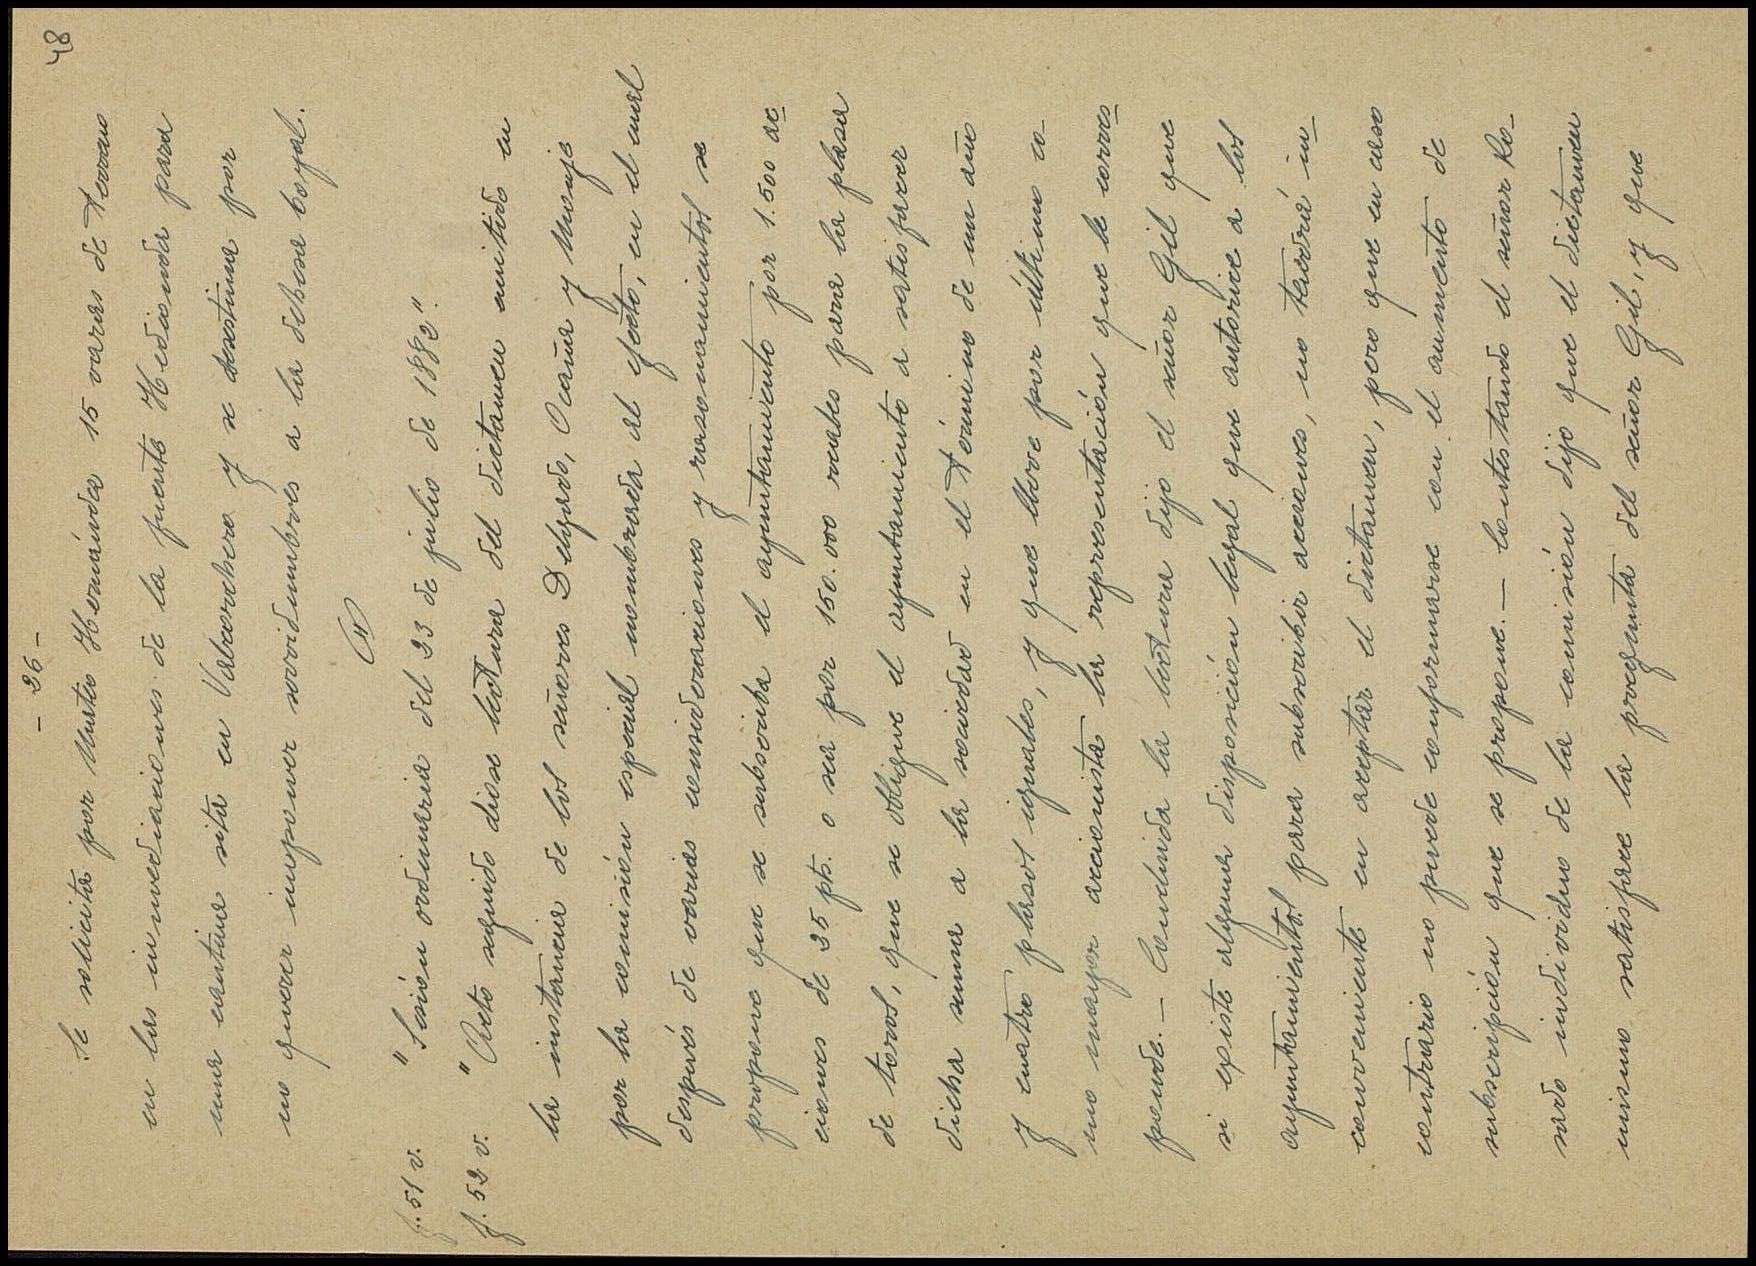 - 26 -
48
Se solicita por Mateo Hernández 15 varas de terreno
en las inmediaciones de la fuente Hedionda para
una cantina sita en Valcorchero y se desestima por
no querer imponer servidumbres a la dehesa boyal.
f. 51 v. "Sesión ordinaria del 23 de julio de 1882".
f. 52 v. "Acto seguido diose lectura del dictamen emitido en
la instancia de los señores Delgado, Ocaña y Monge
por la comisión especial nombrada al efecto, en el cual
después de varias consideraciones y razonamientos se
propone que se subscriba el ayuntamiento por 1.500 ac-
ciones de 25 pts. o sea por 150.000 reales para la plaza
de toros, que se obligue el ayuntamiento a satisfacer
dicha suma a la sociedad en el término de un año
y cuatro plazos iguales, y que lleve por último co-
mo mayor accionista la representación que le corres-
ponde. - Concluida la lectura dijo el señor Gil que
si existe alguna disposición legal que autorice a los
ayuntamientos para subscribir acciones, no tendrá in-
conveniente en aceptar el dictamen, pero que en caso
contrario no puede conformarse con el aumento de
subscripción que se propone. - Contestando el señor Ro-
sado individuo de la comisión dijo que el dictamen
mismo satisface la pregunta del señor Gil, y que